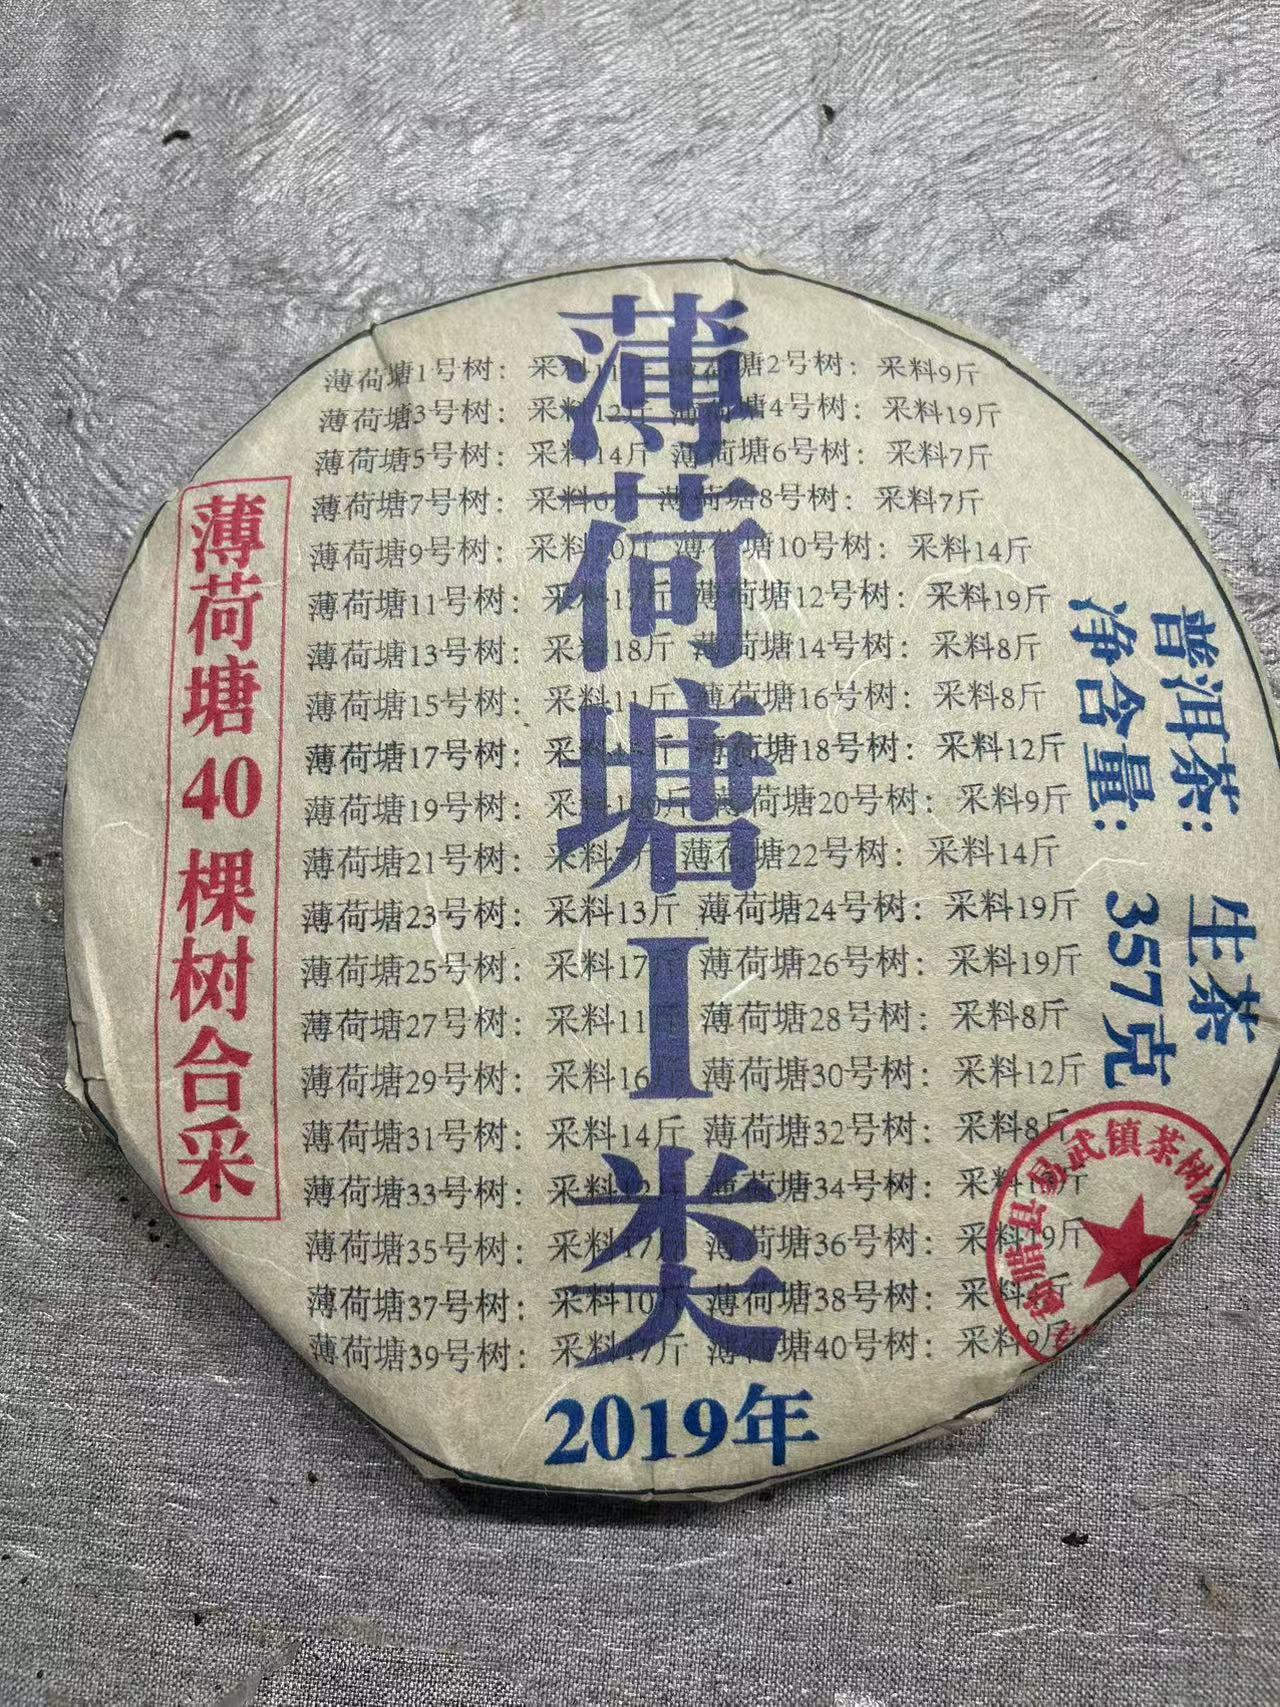 薄荷塘I类
2019年
薄荷塘40棵树合采
薄荷塘1号树：采料11斤 薄荷塘2号树：采料9斤
薄荷塘3号树：采料12斤 薄荷塘4号树：采料19斤
薄荷塘5号树：采料14斤 薄荷塘6号树：采料7斤
薄荷塘7号树：采料6斤 薄荷塘8号树：采料7斤
薄荷塘9号树：采料 薄荷塘10号树：采料14斤
薄荷塘11号树：采料 薄荷塘12号树：采料19斤
薄荷塘13号树：采料18斤 薄荷塘14号树：采料8斤
薄荷塘15号树：采料11斤 薄荷塘16号树：采料8斤
薄荷塘17号树：采料 薄荷塘18号树：采料12斤
薄荷塘19号树：采料 薄荷塘20号树：采料9斤
薄荷塘21号树：采料 薄荷塘22号树：采料14斤
薄荷塘23号树：采料13斤 薄荷塘24号树：采料19斤
薄荷塘25号树：采料17斤 薄荷塘26号树：采料19斤
薄荷塘27号树：采料11斤 薄荷塘28号树：采料8斤
薄荷塘29号树：采料16斤 薄荷塘30号树：采料12斤
薄荷塘31号树：采料14斤 薄荷塘32号树：采料8斤
薄荷塘33号树：采料 薄荷塘34号树：采料
薄荷塘35号树：采料17斤 薄荷塘36号树：采料
薄荷塘37号树：采料10斤 薄荷塘38号树：采料
薄荷塘39号树：采料17斤 薄荷塘40号树：采料9斤
普洱茶：生茶
净含量：357克
易武镇茶树